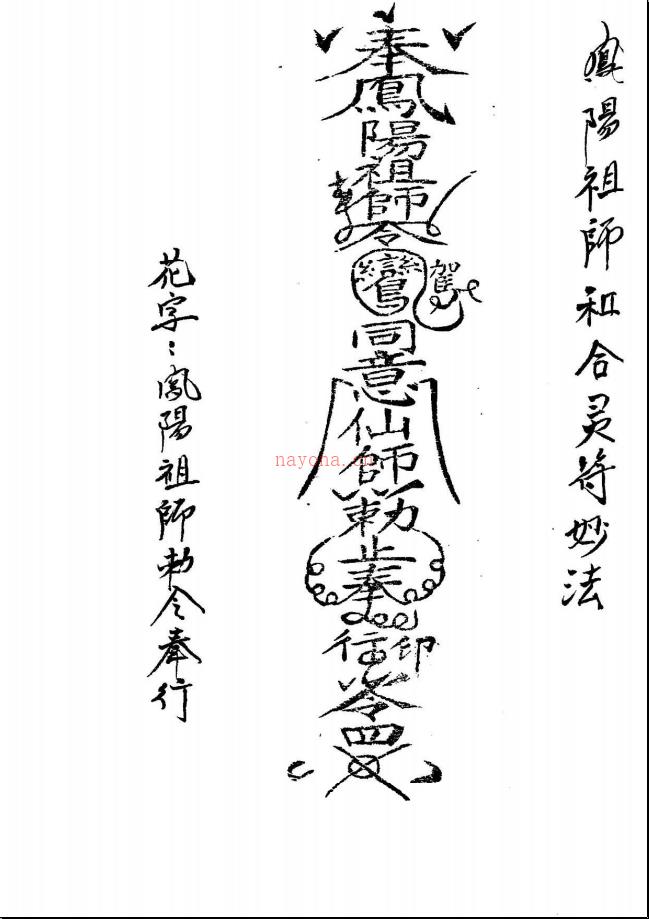 鳳陽祖師和合灵符妙法
奉鳳陽祖師令
奉
鸞駕
同意仙師勅
止奉
行印
令
花字：鳳陽祖師勅令奉行
nayona.cn